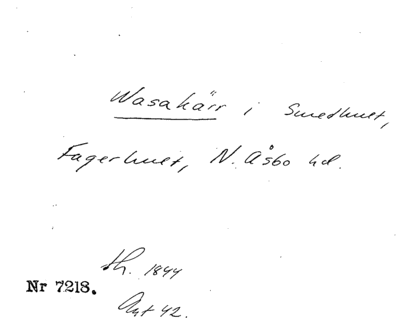 Wasakärr i Smedhult,
Fagerhult, N. Åsbo hd.
th. 1844
Nr 7218.
Ant 42.